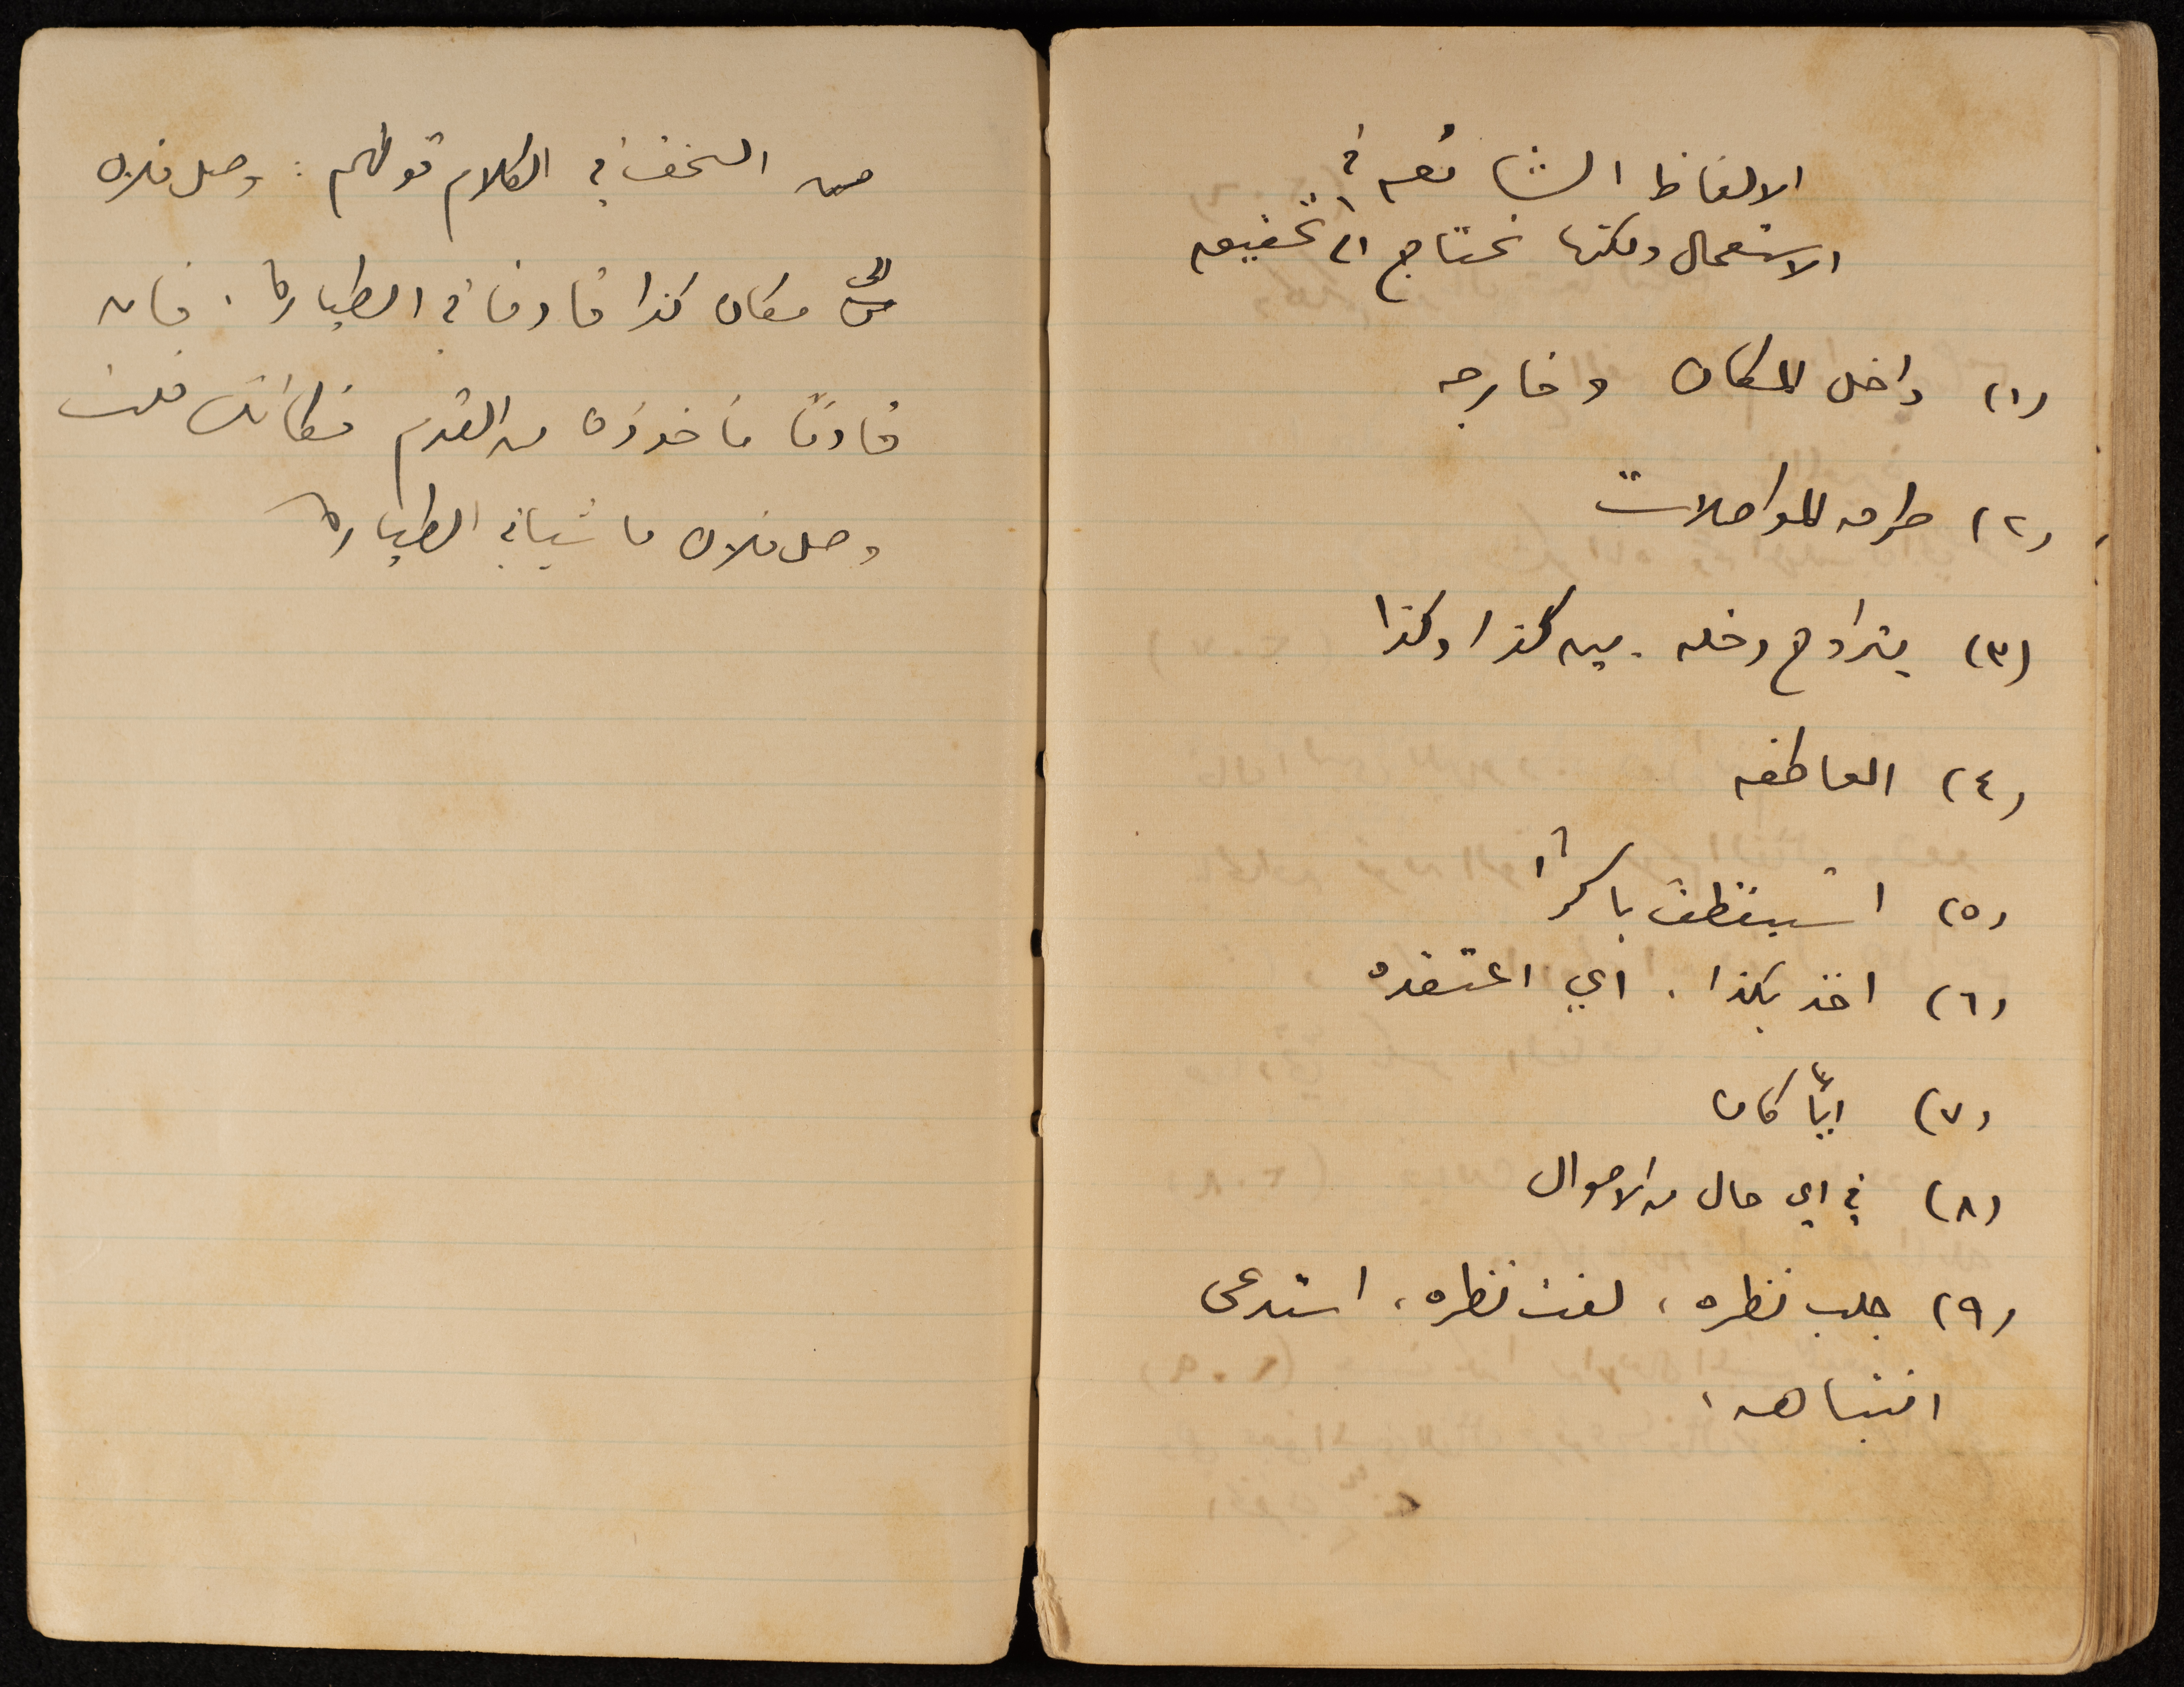 الالفاظ الشائعه في
الاستعمال ولكنها تحتاج الى تحقيق
(١) داخل المكان وخارجه
(٢) طرق المواصلات
(٣) يتراوح دخله بين كذا وكذا
(٤) العاطفه
(٥) استيقظت باكراً
(٦) اخذ بكذا، اي اعتقده
(٧) ايّاً كان
(٨) في اي حال من الاحوال
(٩) جلب نظره، لفت نظره، استدعى
انتباهه،
من السخف في الكلام قولهم: وصل فلان
الى مكان كذا قادما في الطياره. فان
قادمًا مأخوذه من القدم فكأنك قلت
وصل فلان ماشيا في الطياره